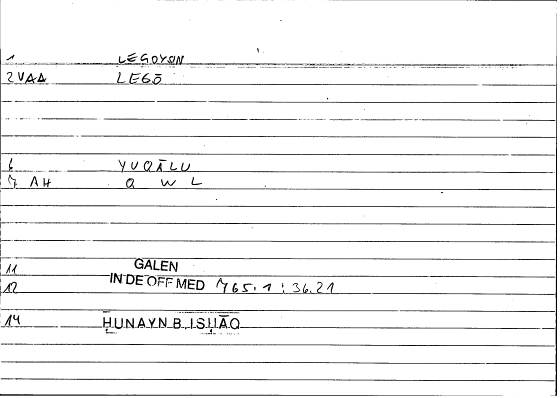 1 LEGOYON
2 VAA LEGŌ
6 YUQĀLU
7 AH Q W L
11 GALEN
12 IN DE OFF MED 765.1 : 36.21
14 ḤUNAYN B. ISḤĀQ